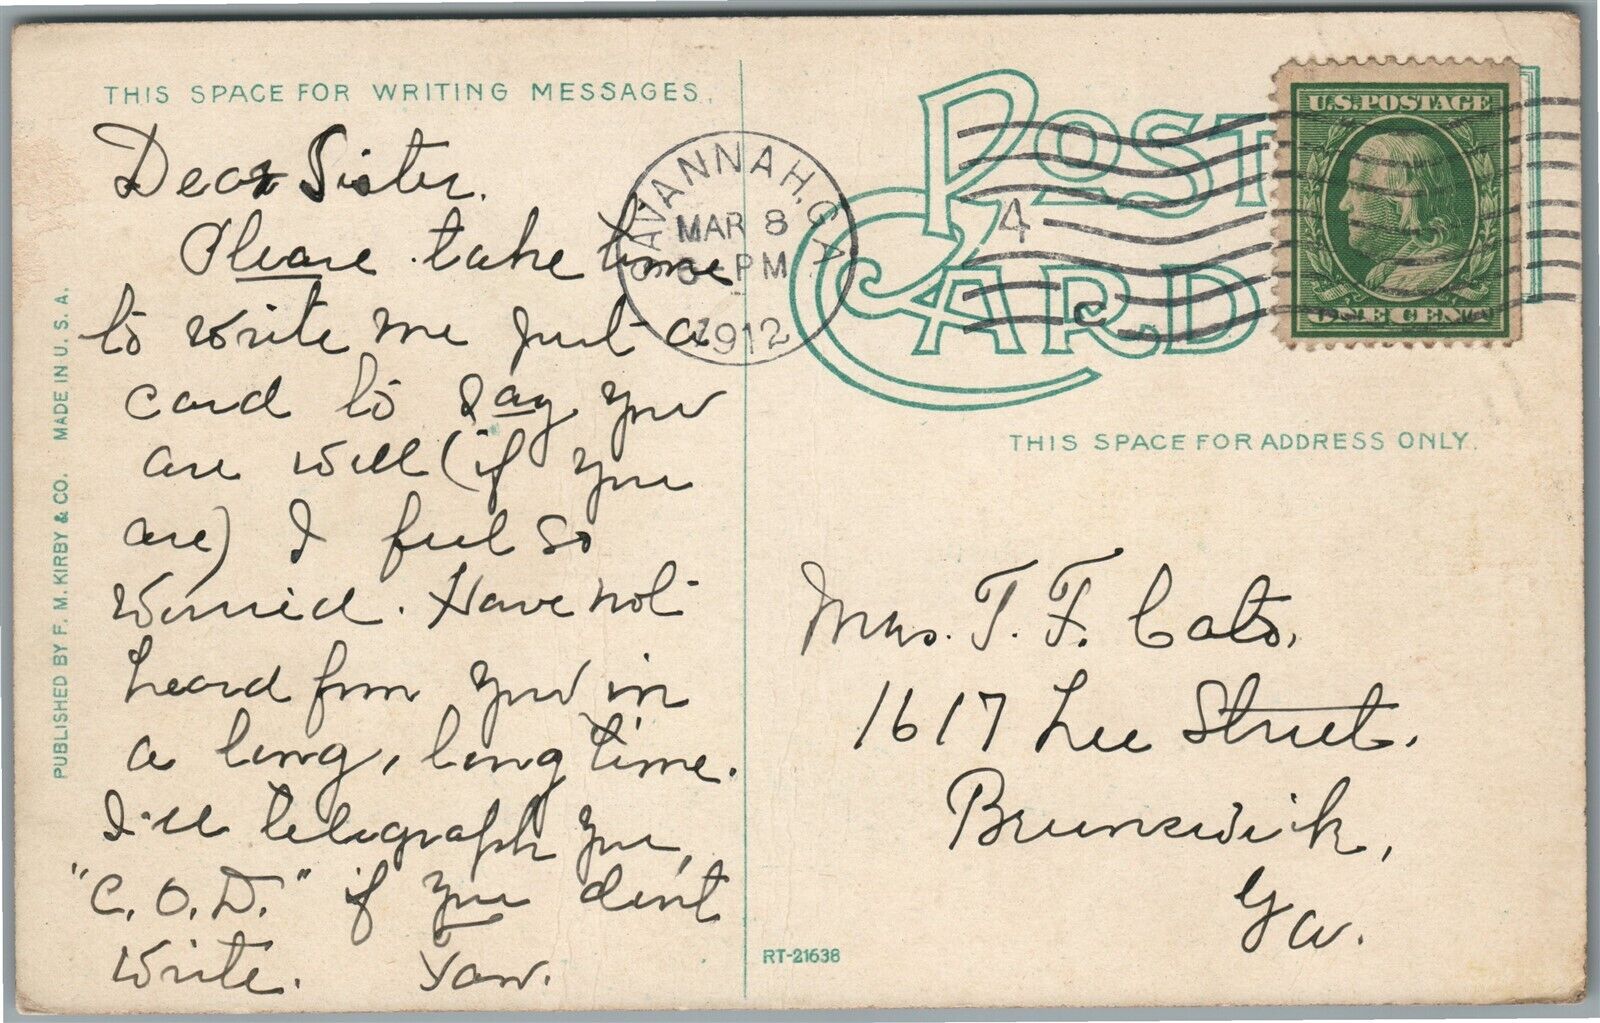 THIS SPACE FOR WRITING MESSAGES.
Dear Sister.
Please take time
to write me just a
card to say you
are well (if you
are) I feel so
worried. Have not
heard from you in
a long, long time.
I'll telegraph you,
"C.O.D." if you don't
write.
PUBLISHED BY F. M. KIRBY & CO. MADE IN U. S. A.
SAVANNAH, GA.
MAR 8
PM
1912
POST CARD
4
U.S. POSTAGE
ONE CENT
THIS SPACE FOR ADDRESS ONLY.
Mrs. T. F. Cato,
1617 Lee Street,
Brunswick,
Ga.
RT-21638